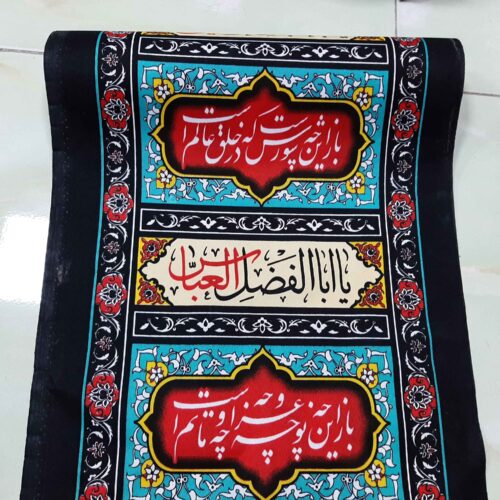 باز این چه شورش است که در خلق عالم است
یا اباالفضل العباس
باز این چه نوحه و چه عزا و چه ماتم است